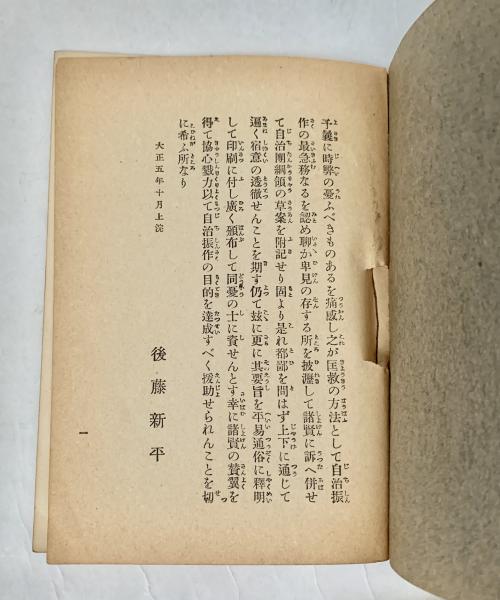 予曩に時弊の憂ふべきものあるを痛感し之が匡救の方法として自治振
作の最急務なるを認め聊か卑見の存する所を披瀝して諸賢に訴へ併せ
て自治團綱領の草案を附記せり固より是れ都鄙を問はず上下に通じて
遍く宿意の透徹せんことを期す仍て玆に更に其要旨を平易通俗に釋明
して印刷に付し廣く頒布して同憂の士に資せんとす幸に諸賢の贊翼を
得て協心戮力以て自治振作の目的を達成すべく援助せられんことを切
に希ふ所なり
大正五年十月上浣
後藤新平
一